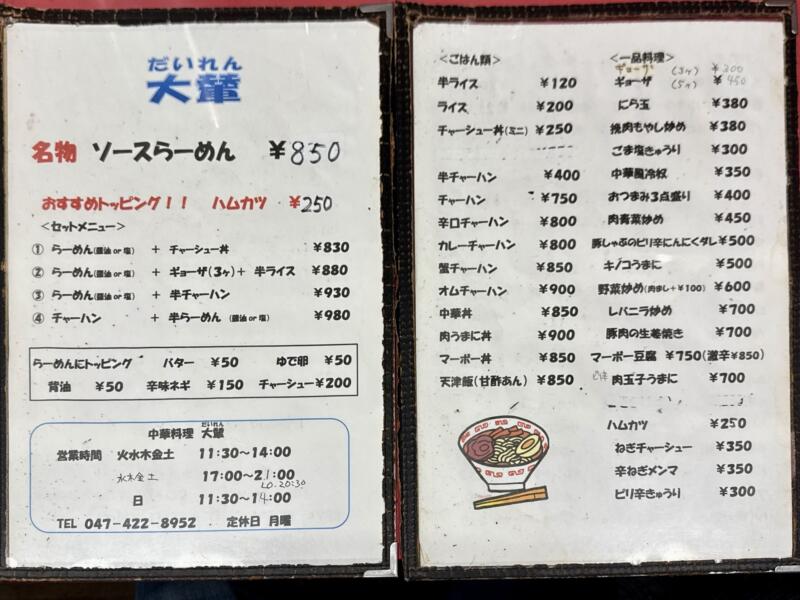 だいれん
大輦
名物 ソースらーめん ¥850
おすすめトッピング!! ハムカツ ¥250
<セットメニュー>
① らーめん(醤油 or 塩) + チャーシュー丼 ¥830
② らーめん(醤油 or 塩) + ギョーザ(3ヶ)+ 半ライス ¥880
③ らーめん(醤油 or 塩) + 半チャーハン ¥930
④ チャーハン + 半らーめん (醤油 or 塩) ¥980
らーめんにトッピング バター ¥50 ゆで卵 ¥50
背油 ¥50 辛味ネギ ¥150 チャーシュー¥200
だいれん
中華料理 大輦
営業時間 火水木金土 11:30~14:00
水木金土 17:00~21:00
LO.20:30
日 11:30~14:00
TEL 047-422-8952 定休日 月曜
<ごはん類>
半ライス ¥120
ライス ¥200
チャーシュー丼(ミニ) ¥250
半チャーハン ¥400
チャーハン ¥750
辛口チャーハン ¥800
カレーチャーハン ¥800
蟹チャーハン ¥850
オムチャーハン ¥900
中華丼 ¥850
肉うまに丼 ¥900
マーボー丼 ¥850
天津飯(甘酢あん) ¥850
<一品料理>
ギョーザ (3ヶ) ¥300
ギョーザ (5ヶ) ¥450
にら玉 ¥380
挽肉もやし炒め ¥380
ごま塩きゅうり ¥300
中華風冷奴 ¥350
おつまみ3点盛り ¥400
肉青菜炒め ¥450
豚しゃぶのピリ辛にんにくダレ ¥500
キノコうまに ¥500
野菜炒め(肉まし+¥100) ¥600
レバニラ炒め ¥700
豚肉の生姜焼き ¥700
マーボー豆腐 ¥750(激辛¥850)
肉玉子うまに ¥700
ハムカツ ¥250
ねぎチャーシュー ¥350
辛ねぎメンマ ¥350
ピリ辛きゅうり ¥300